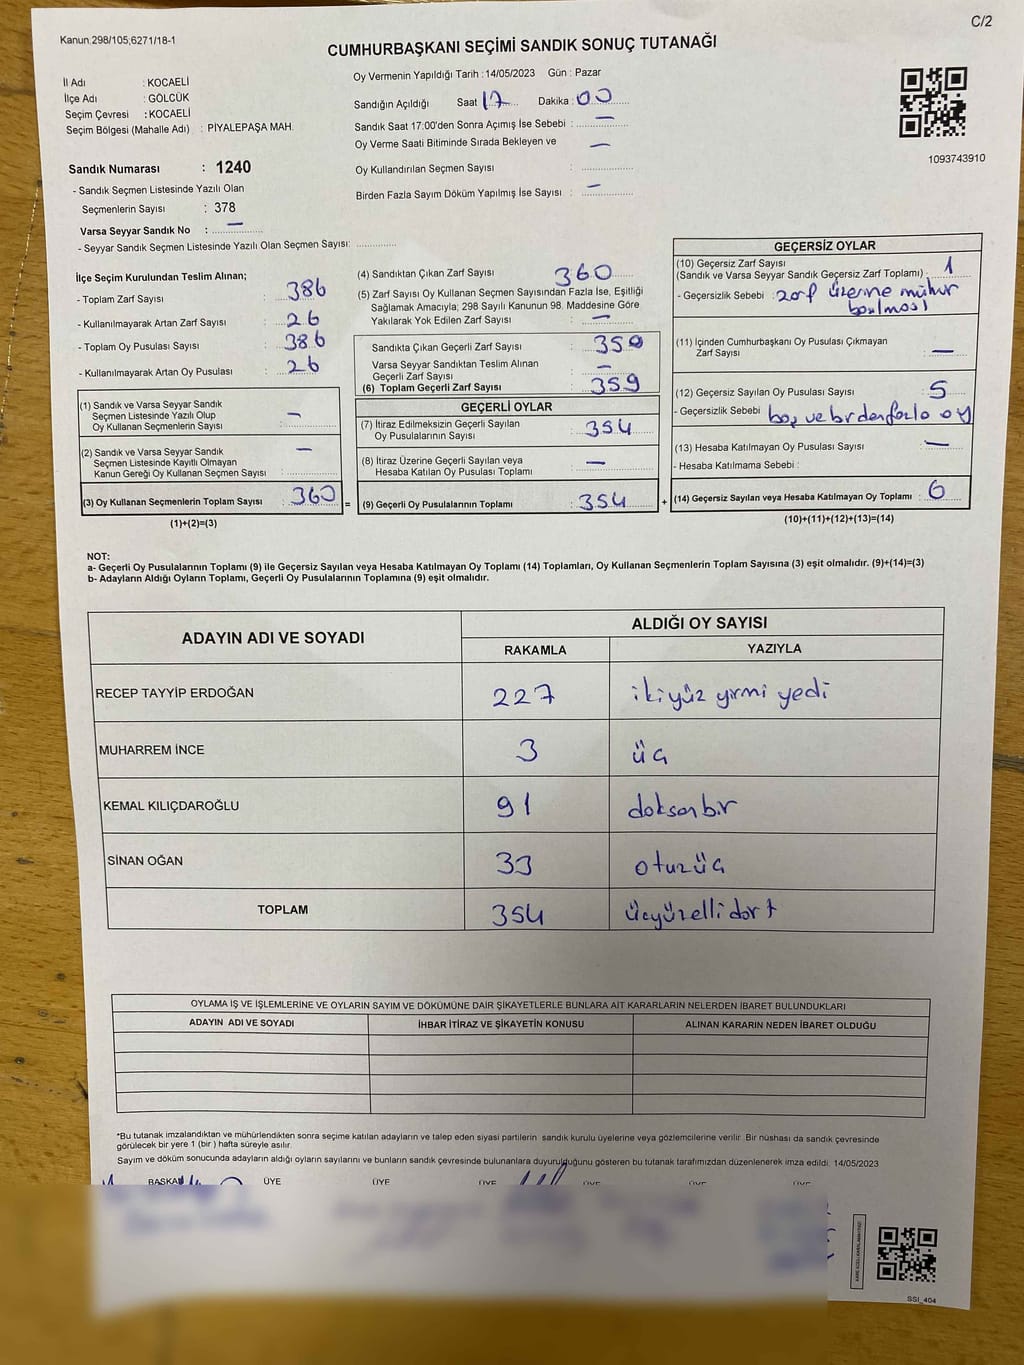 C/2
Kanun.298/105;6271/18-1
CUMHURBAŞKANI SEÇİMİ SANDIK SONUÇ TUTANAĞI
İl Adı : KOCAELİ
İlçe Adı : GÖLCÜK
Seçim Çevresi : KOCAELİ
Seçim Bölgesi (Mahalle Adı) : PİYALEPAŞA MAH.
Sandık Numarası : 1240
- Sandık Seçmen Listesinde Yazılı Olan
Seçmenlerin Sayısı : 378
Varsa Seyyar Sandık No : —
- Seyyar Sandık Seçmen Listesinde Yazılı Olan Seçmen Sayısı: ............
Oy Vermenin Yapıldığı Tarih : 14/05/2023 Gün : Pazar
Sandığın Açıldığı Saat 17 Dakika : 00
Sandık Saat 17:00'den Sonra Açımış İse Sebebi : —
Oy Verme Saati Bitiminde Sırada Bekleyen ve —
Oy Kullandırılan Seçmen Sayısı :
Birden Fazla Sayım Döküm Yapılmış İse Sayısı : —
1093743910
İlçe Seçim Kurulundan Teslim Alınan;
- Toplam Zarf Sayısı : 386
- Kullanılmayarak Artan Zarf Sayısı : 26
- Toplam Oy Pusulası Sayısı : 386
- Kullanılmayarak Artan Oy Pusulası : 26
(1) Sandık ve Varsa Seyyar Sandık
Seçmen Listesinde Yazılı Olup
Oy Kullanan Seçmenlerin Sayısı : —
(2) Sandık ve Varsa Seyyar Sandık —
Seçmen Listesinde Kayıtlı Olmayan
Kanun Gereği Oy Kullanan Seçmen Sayısı :
(3) Oy Kullanan Seçmenlerin Toplam Sayısı : 360 =
(1)+(2)=(3)
(4) Sandıktan Çıkan Zarf Sayısı : 360
(5) Zarf Sayısı Oy Kullanan Seçmen Sayısından Fazla İse, Eşitliği
Sağlamak Amacıyla; 298 Sayılı Kanunun 98. Maddesine Göre
Yakılarak Yok Edilen Zarf Sayısı : —
Sandıkta Çıkan Geçerli Zarf Sayısı : 359
Varsa Seyyar Sandıktan Teslim Alınan
Geçerli Zarf Sayısı : —
(6) Toplam Geçerli Zarf Sayısı : 359
GEÇERLİ OYLAR
(7) İtiraz Edilmeksizin Geçerli Sayılan
Oy Pusulalarının Sayısı : 354
(8) İtiraz Üzerine Geçerli Sayılan veya
Hesaba Katılan Oy Pusulası Toplamı : —
(9) Geçerli Oy Pusulalarının Toplamı : 354 +
GEÇERSİZ OYLAR
(10) Geçersiz Zarf Sayısı
(Sandık ve Varsa Seyyar Sandık Geçersiz Zarf Toplamı) : 1
- Geçersizlik Sebebi : zarf üzerine mühür
basılması
(11) İçinden Cumhurbaşkanı Oy Pusulası Çıkmayan
Zarf Sayısı : —
(12) Geçersiz Sayılan Oy Pusulası Sayısı : 5
- Geçersizlik Sebebi : boş ve birden fazla oy
(13) Hesaba Katılmayan Oy Pusulası Sayısı : —
- Hesaba Katılmama Sebebi :
(14) Geçersiz Sayılan veya Hesaba Katılmayan Oy Toplamı : 6
(10)+(11)+(12)+(13)=(14)
NOT:
a- Geçerli Oy Pusulalarının Toplamı (9) ile Geçersiz Sayılan veya Hesaba Katılmayan Oy Toplamı (14) Toplamları, Oy Kullanan Seçmenlerin Toplam Sayısına (3) eşit olmalıdır. (9)+(14)=(3)
b- Adayların Aldığı Oyların Toplamı, Geçerli Oy Pusulalarının Toplamına (9) eşit olmalıdır.
ADAYIN ADI VE SOYADI ALDIĞI OY SAYISI
RAKAMLA YAZIYLA
RECEP TAYYİP ERDOĞAN 227 ikiyüz yirmi yedi
MUHARREM İNCE 3 üç
KEMAL KILIÇDAROĞLU 91 doksanbir
SİNAN OĞAN 33 otuzüç
TOPLAM 354 üçyüzellidört
OYLAMA İŞ VE İŞLEMLERİNE VE OYLARIN SAYIM VE DÖKÜMÜNE DAİR ŞİKAYETLERLE BUNLARA AİT KARARLARIN NELERDEN İBARET BULUNDUKLARI
ADAYIN ADI VE SOYADI İHBAR İTİRAZ VE ŞİKAYETİN KONUSU ALINAN KARARIN NEDEN İBARET OLDUĞU
*Bu tutanak imzalandıktan ve mühürlendikten sonra seçime katılan adayların ve talep eden siyasi partilerin sandık kurulu üyelerine veya gözlemcilerine verilir. Bir nüshası da sandık çevresinde
görülecek bir yere 1 (bir) hafta süreyle asılır.
Sayım ve döküm sonucunda adayların aldığı oyların sayılarını ve bunların sandık çevresinde bulunanlara duyurulduğunu gösteren bu tutanak tarafımızdan düzenlenerek imza edildi. 14/05/2023
BAŞKAN ÜYE ÜYE ÜYE ÜYE ÜYE ÜYE
SSI_404